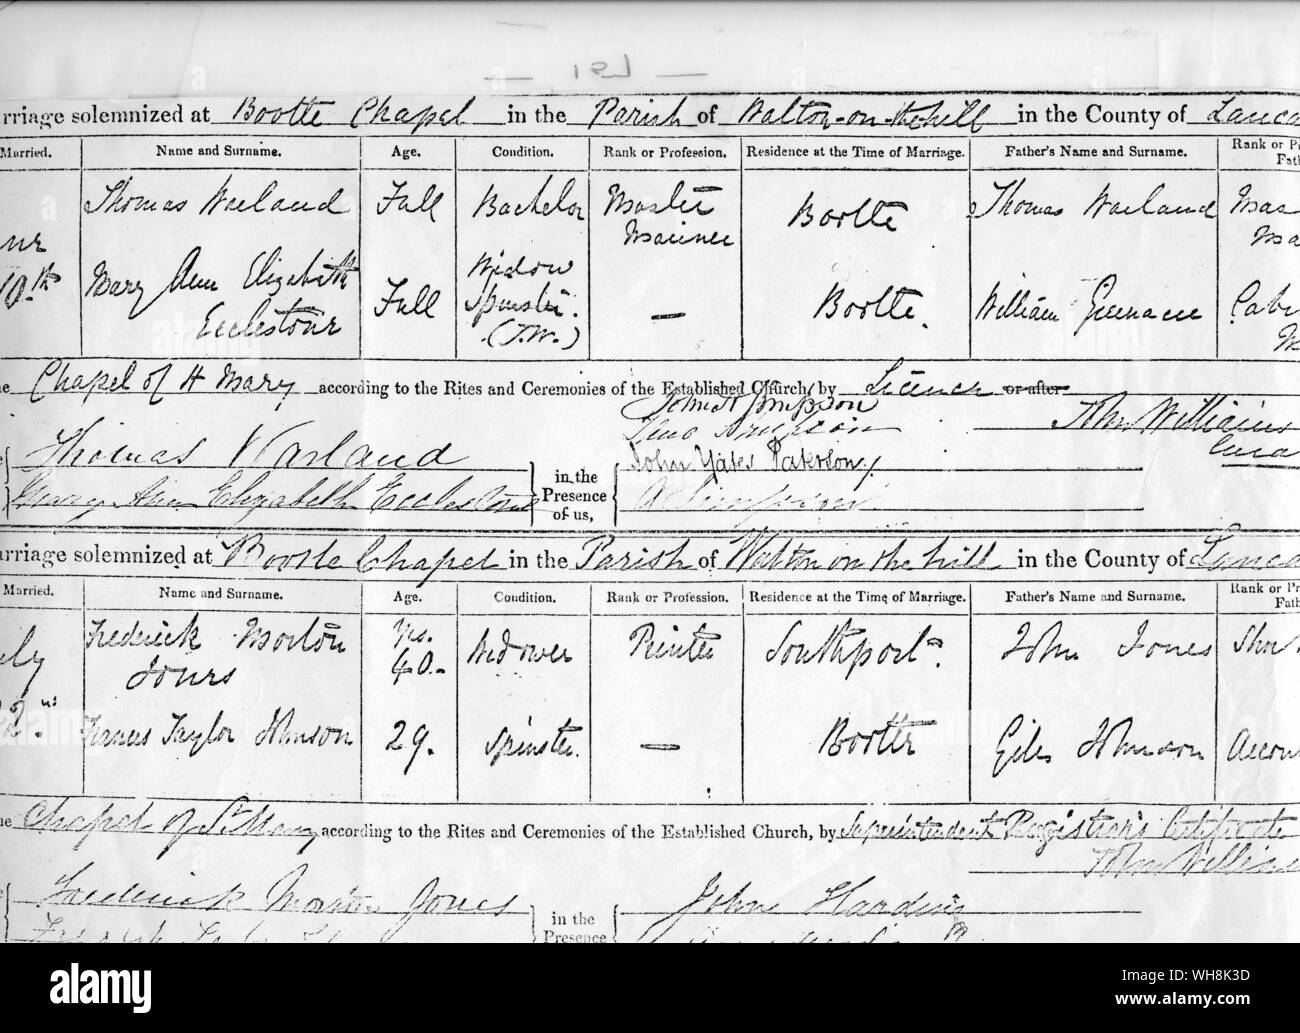 — 191 —
rriage solemnized at Bootle Chapel in the Parish of Walton-on-the-hill in the County of Lanca
Married. Name and Surname. Age. Condition. Rank or Profession. Residence at the Time of Marriage. Father's Name and Surname. Rank or P
Fath
Thomas Warland Full Bachelor Master Mariner Bootle Thomas Warland Mas
Ma
10th Mary Ann Elizabeth Ecclestone Full Widow Spinster (J.W.) — Bootle. William Greenacre
Chapel of St Mary according to the Rites and Ceremonies of the Established Church, by Licence or after
John Simpson
John Williams
Thomas Warland in the Presence of us, John Yates Paterson
Mary Ann Elizabeth Ecclestone
arriage solemnized at Bootle Chapel in the Parish of Walton on the hill in the County of Lanca
Married. Name and Surname. Age. Condition. Rank or Profession. Residence at the Time of Marriage. Father's Name and Surname. Rank or Pr
Fath
ly Frederick Morton Jones Yrs. 40.- Widower Printer Southport John Jones
Frances Taylor Johnson 29. Spinster. — Bootle Giles Johnson Accou
Chapel of St Mary according to the Rites and Ceremonies of the Established Church, by Superintendent Registrar's Certificate
John Williams
Frederick Morton Jones in the Presence John Harding
alamy
Image ID: WH8K3D
www.alamy.com